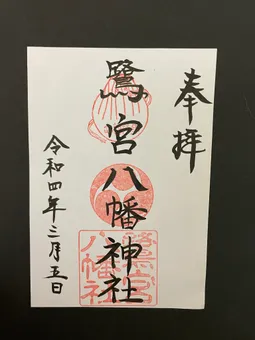 奉拝
鷺宮八幡神社
令和四年三月五日
鷺宮
八幡社